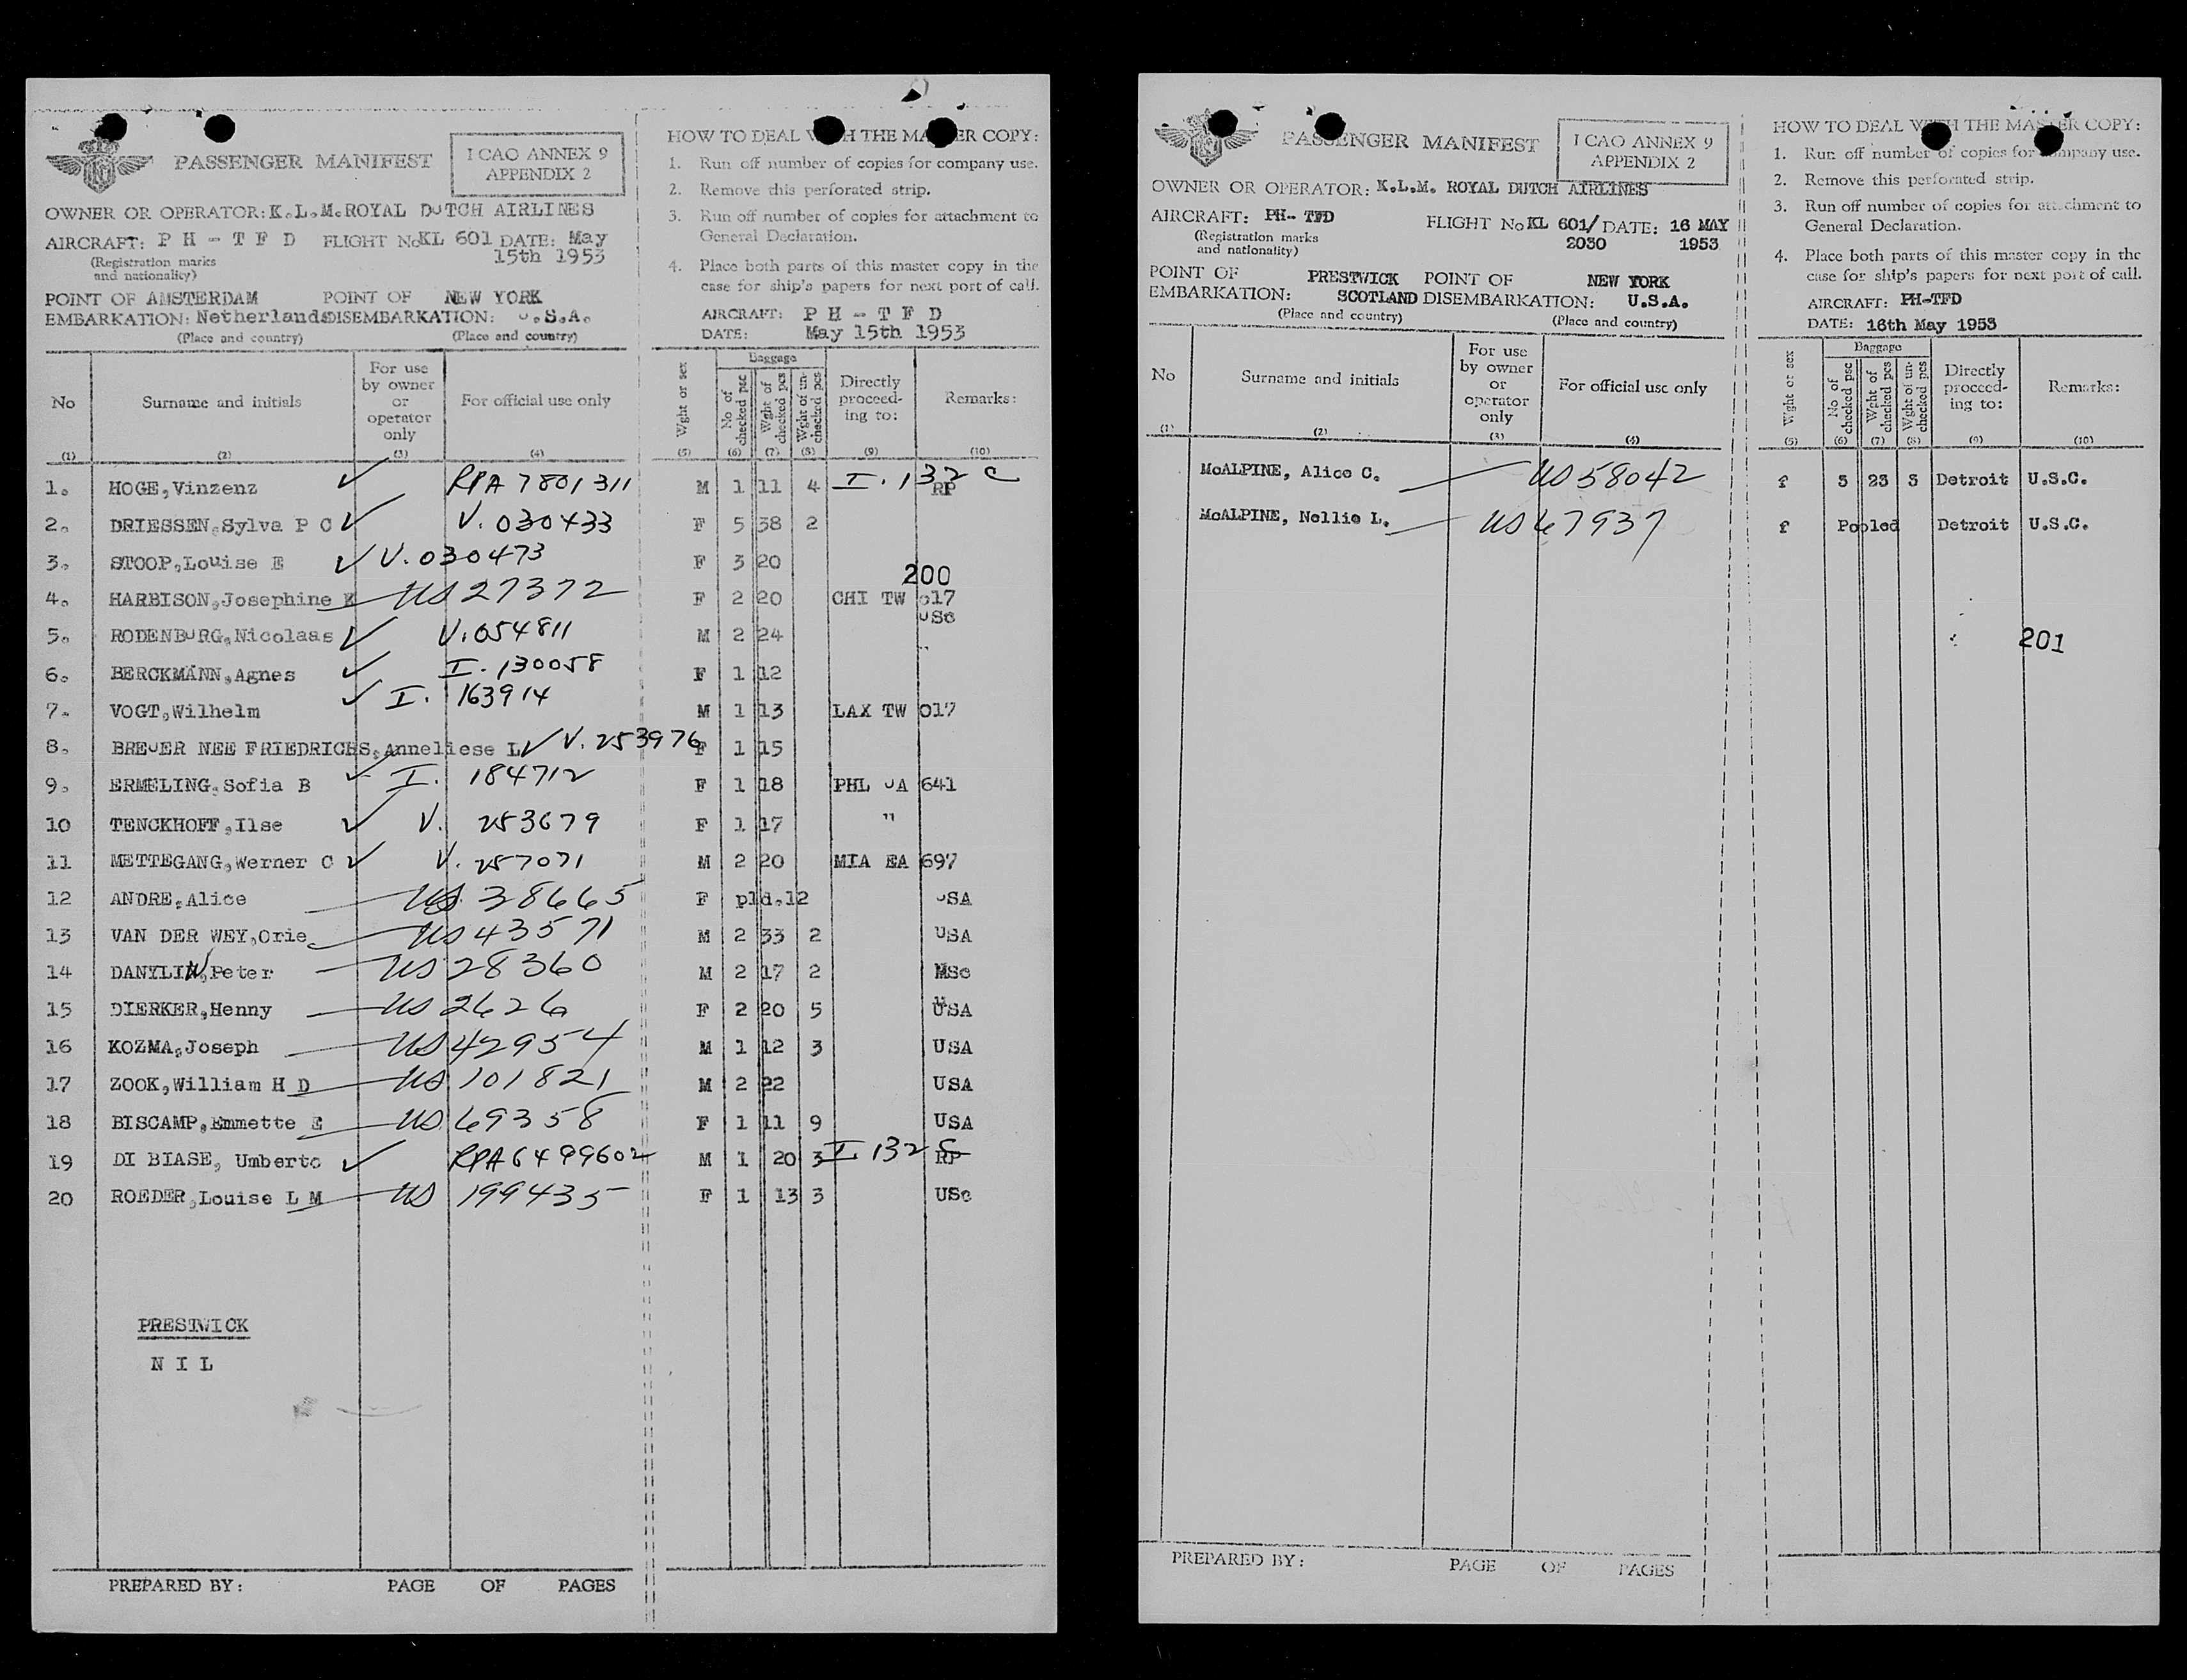 PASSENGER MANIFEST
I CAO ANNEX 9
APPENDIX 2
OWNER OR OPERATOR: K.L.M. ROYAL DUTCH AIRLINES
AIRCRAFT: P H - T F D FLIGHT No KL 601 DATE: May 15th 1953
(Registration marks
and nationality)
POINT OF EMBARKATION: AMSTERDAM Netherlands POINT OF DISEMBARKATION: NEW YORK U.S.A.
(Place and country) (Place and country)
HOW TO DEAL WITH THE MASTER COPY:
1. Run off number of copies for company use.
2. Remove this perforated strip.
3. Run off number of copies for attachment to
General Declaration.
4. Place both parts of this master copy in the
case for ship's papers for next port of call.
AIRCRAFT: P H - T F D
DATE: May 15th 1953
No Surname and initials For use by owner or operator only For official use only Wght or sex Baggage No of checked psc Wght of checked pcs Wght of un-checked pcs Directly proceed-ing to: Remarks:
(1) (2) (3) (4) (5) (6) (7) (8) (9) (10)
1. HOGE, Vinzenz ✓ RPA 7801311 M 1 11 4 I. 132 C RP
2. DRIESSEN, Sylva P C ✓ V. 030433 F 5 38 2
3. STOOP, Louise E ✓ V. 030473 F 3 20
200
4. HARBISON, Josephine K US 27372 F 2 20 CHI TW 017
USc
5. RODENBURG, Nicolaas ✓ V. 054811 M 2 24
6. BERCKMANN, Agnes ✓ I. 130058 F 1 12
7. VOGT, Wilhelm ✓ I. 163914 M 1 13 LAX TW 017
8. BREUER NEE FRIEDRICHS, Anneliese L ✓ V. 253976 F 1 15
9. ERMELING, Sofia B ✓ I. 184712 F 1 18 PHL UA 641
10 TENCKHOFF, Ilse ✓ V. 253679 F 1 17 "
11 METTEGANG, Werner C ✓ V. 257071 M 2 20 MIA EA 697
12 ANDRE, Alice US 38665 F pld.12 USA
13 VAN DER WEY, Orie US 43571 M 2 33 2 USA
14 DANYLIW, Peter US 28360 M 2 17 2 USc
15 DIERKER, Henny US 2626 F 2 20 5 USA
16 KOZMA, Joseph US 429554 M 1 12 3 USA
17 ZOOK, William H D US 101821 M 2 22 USA
18 BISCAMP, Emmette E US 69358 F 1 11 9 USA
19 DI BIASE, Umberto ✓ RPA 6499602 M 1 20 3 I. 132 C RP
20 ROEDER, Louise L M US 199435 F 1 13 3 USc
PRESTWICK
N I L
PREPARED BY: PAGE OF PAGES
PASSENGER MANIFEST
I CAO ANNEX 9
APPENDIX 2
OWNER OR OPERATOR: K.L.M. ROYAL DUTCH AIRLINES
AIRCRAFT: PH- TFD FLIGHT No KL 601/2030 DATE: 16 MAY 1953
(Registration marks
and nationality)
POINT OF EMBARKATION: PRESTWICK SCOTLAND POINT OF DISEMBARKATION: NEW YORK U.S.A.
(Place and country) (Place and country)
HOW TO DEAL WITH THE MASTER COPY:
1. Run off number of copies for company use.
2. Remove this perforated strip.
3. Run off number of copies for attachment to
General Declaration.
4. Place both parts of this master copy in the
case for ship's papers for next port of call.
AIRCRAFT: PH-TFD
DATE: 16th May 1953
No Surname and initials For use by owner or operator only For official use only Wght or sex Baggage No of checked psc Wght of checked pcs Wght of un-checked pcs Directly proceed-ing to: Remarks:
(1) (2) (3) (4) (5) (6) (7) (8) (9) (10)
McALPINE, Alice C. US 58042 f 3 23 3 Detroit U.S.C.
McALPINE, Nellie L. US 67937 f Pooled Detroit U.S.C.
201
PREPARED BY: PAGE OF PAGES